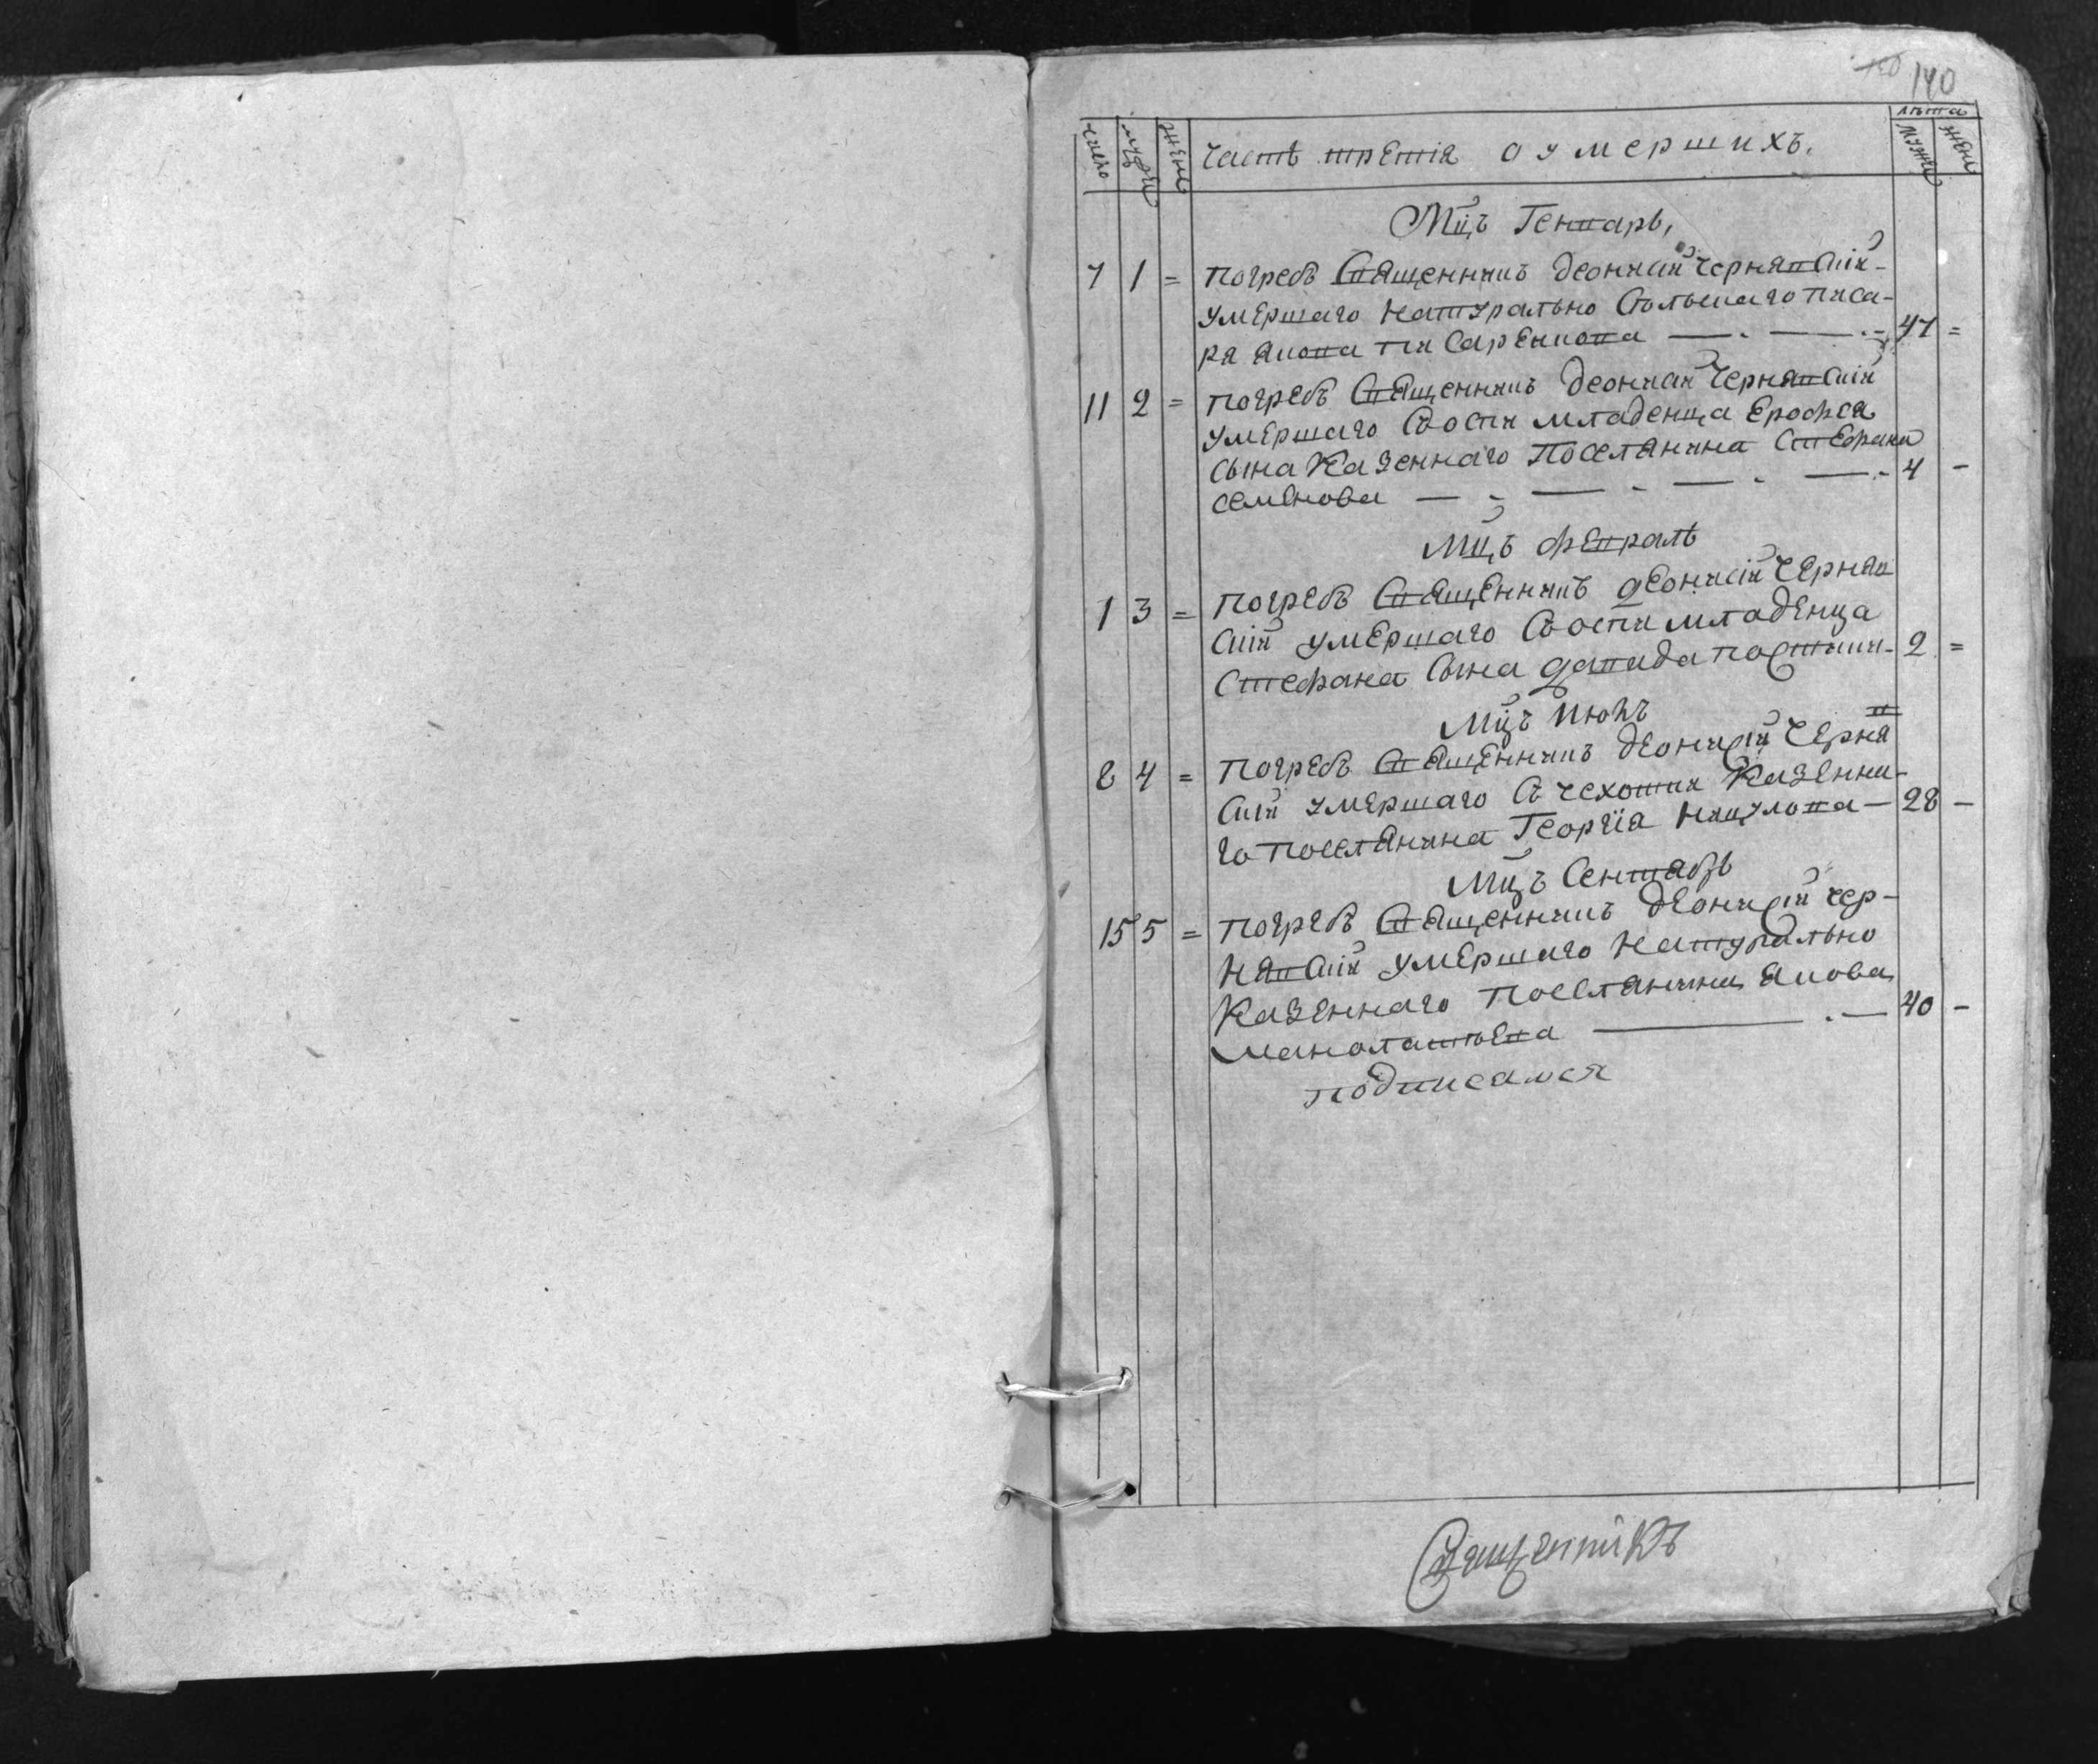 140
лѣта
число мужей женъ Часть третіа о умершихъ. мужей женъ
Мцъ Генварь,
7 1 = погребъ Священникъ Деонисій Чернявскій-
умершаго натурально Сольскаго писа-
ря Якова писаренкова — . — . - 47 =
11 2 = погребъ Священникъ Деонисій Чернявскій
умершаго Совоспи младенца Ерофея
сына Казеннаго Поселянина Стефана
семенова — - — - — - — . - 4 -
Мцъ февраль
1 3 = погребъ Священникъ Деонисій Черняв
скій умершаго Совоспи младенца
Стефана Сына Давида постики - 2 =
Мцъ Июнъ
8 4 = погребъ Священникъ Деонисій Черняв
скій умершаго С чехотки Казенна-
го поселянина Георгіа Никулова — 28 -
Мцъ Сентябрь
15 5 = погребъ Священникъ Деонисій чер-
нявскій умершаго натурально
Казеннаго поселянина Якова
манолатьева — . — 40 -
подписался
Священникъ